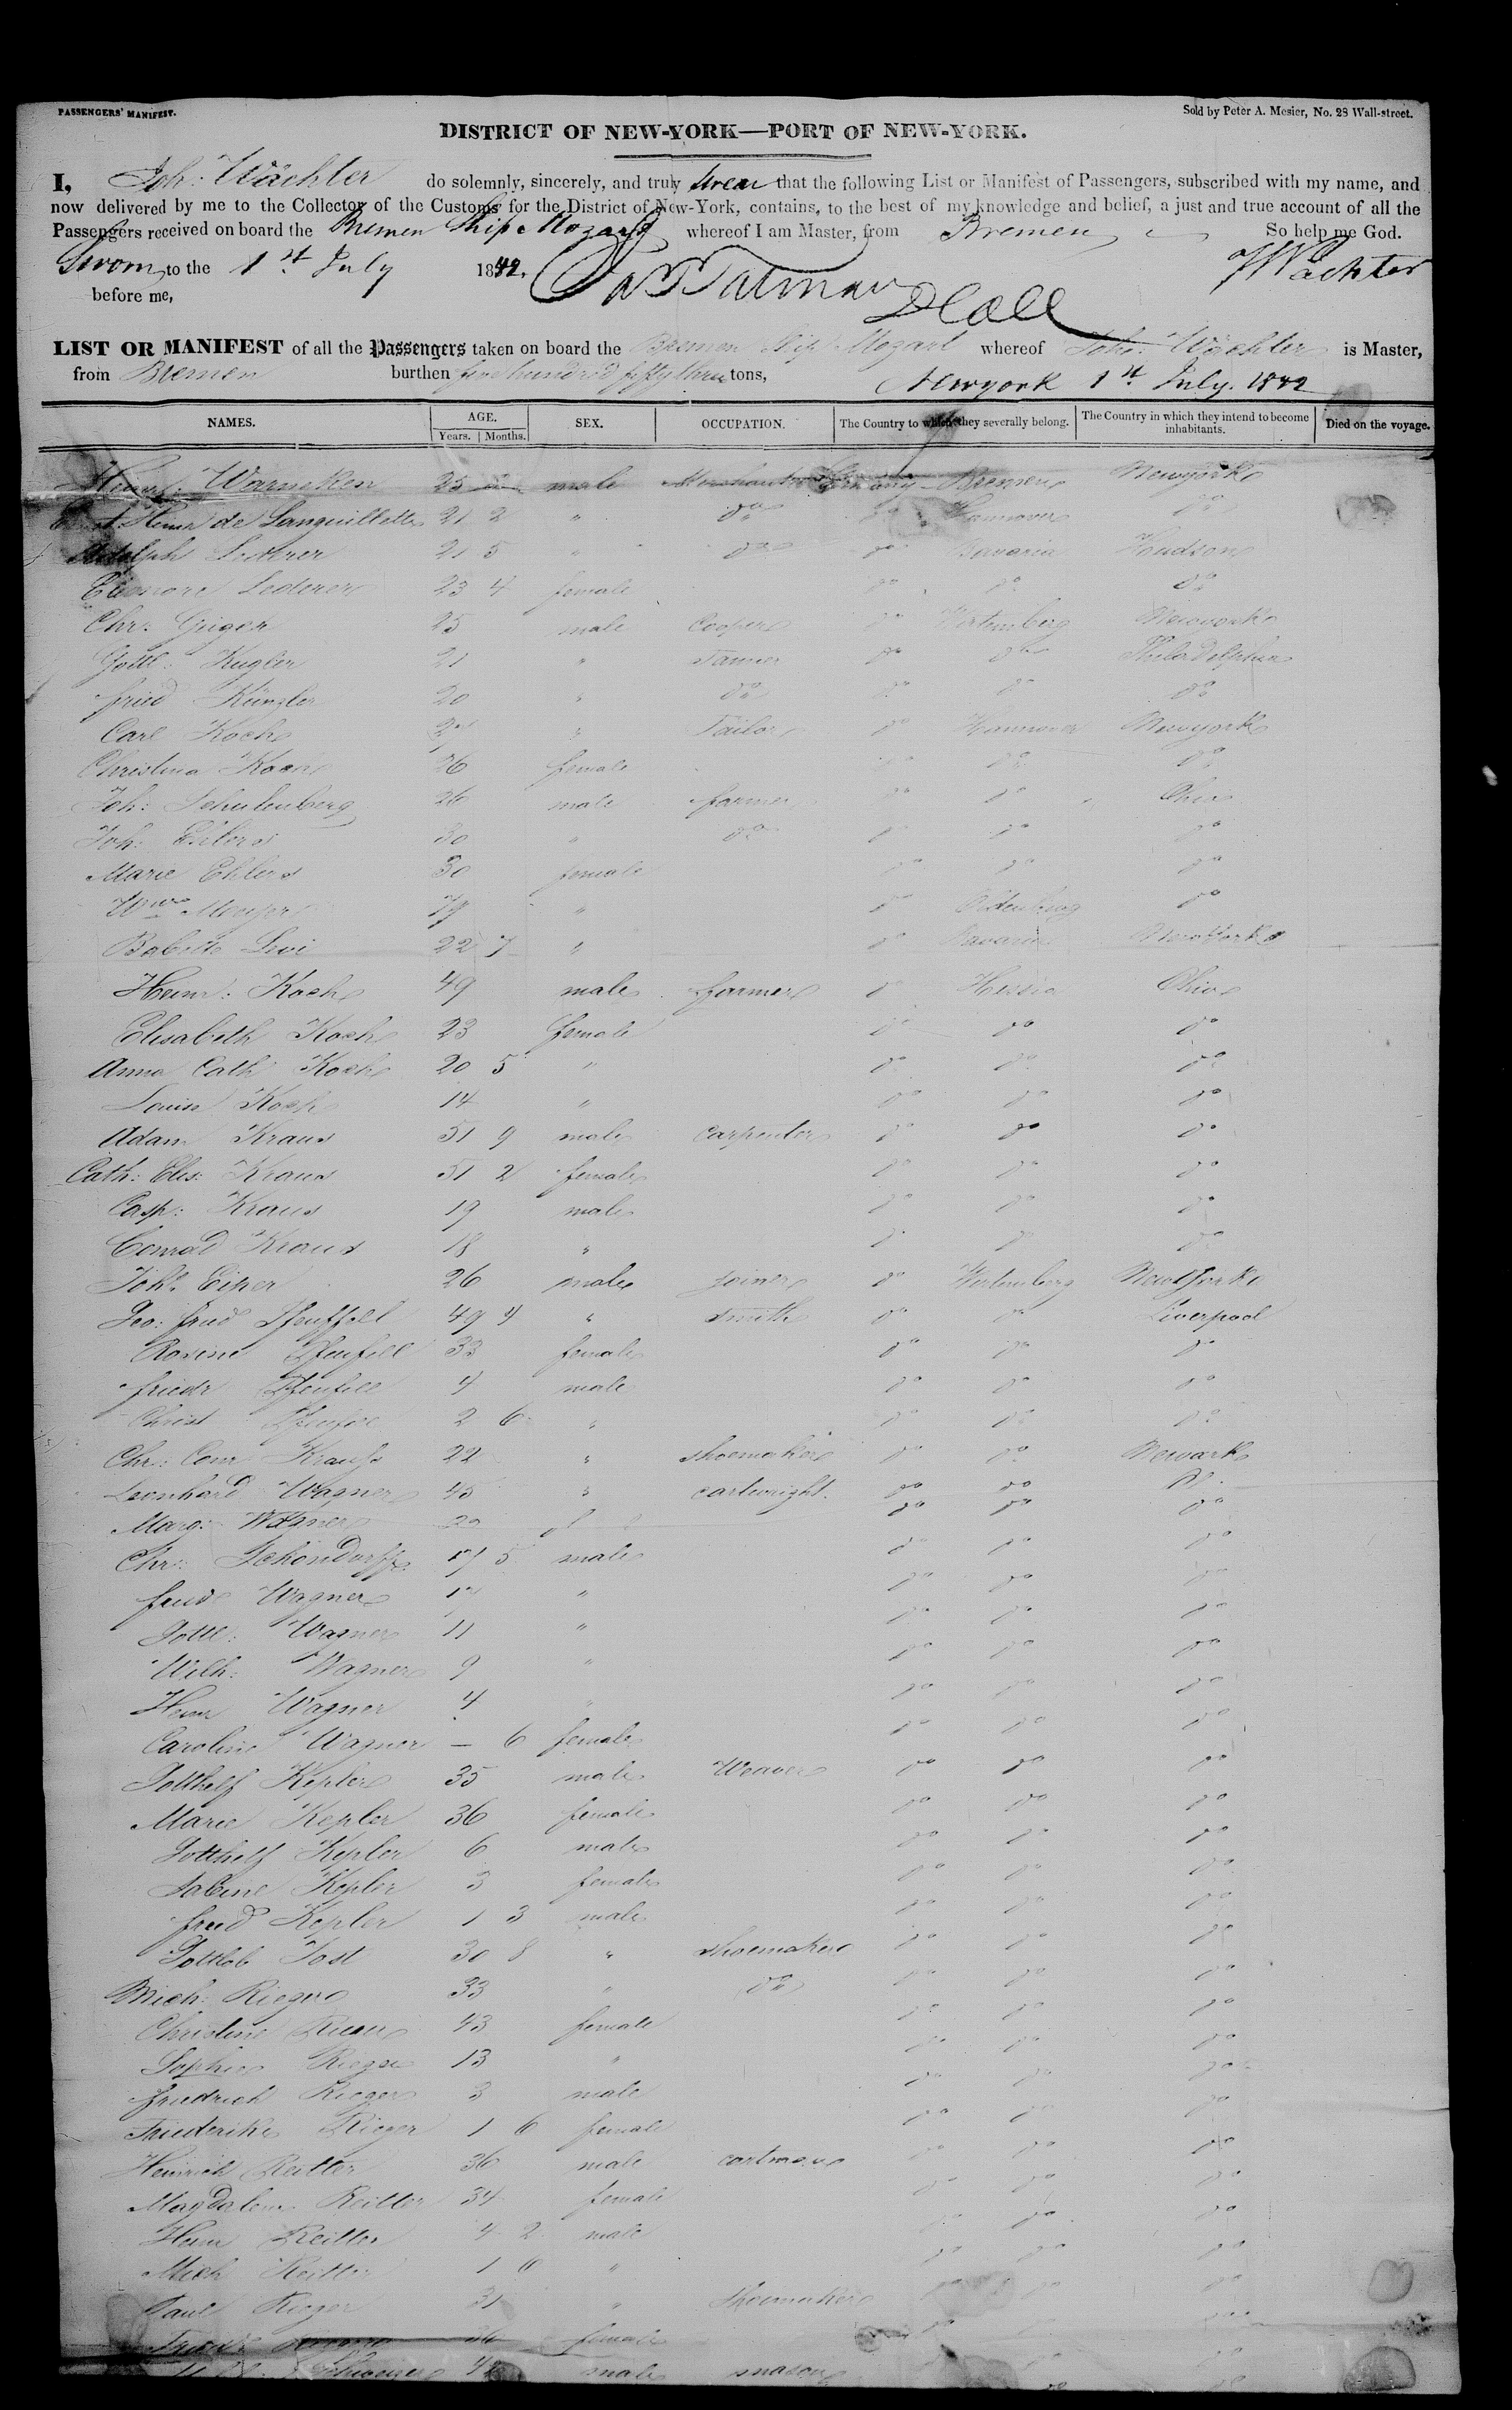 PASSENGERS' MANIFEST.
Sold by Peter A. Mesier, No. 28 Wall-street.
DISTRICT OF NEW-YORK—PORT OF NEW-YORK.
I, Joh: Wächter do solemnly, sincerely, and truly swear that the following List or Manifest of Passengers, subscribed with my name, and
now delivered by me to the Collector of the Customs for the District of New-York, contains, to the best of my knowledge and belief, a just and true account of all the
Passengers received on board the Bremen Ship Mozart whereof I am Master, from Bremen So help me God.
Sworn to the 1st July 1842. JWächter
before me,
LIST OR MANIFEST of all the Passengers taken on board the Bremen Ship Mozart whereof Joh: Wächter is Master,
from Bremen burthen five hundred fifty three tons, Newyork 1st July. 1842
NAMES. AGE. SEX. OCCUPATION. The Country to which they severally belong. The Country in which they intend to become inhabitants. Died on the voyage.
Years. Months.
Heinr: Warneken 25 male Germany Bremen Newyork
Heinr de Languillette 21 2 " do do Hannover do
Adolph Lederer 21 5 " do do Bavaria Houdson
Eleonore Lederer 23 4 female do do do
Chr: Geiger 25 male Cooper do Wirtemberg Newyork
Gottl: Kugler 21 " Tanner do do Philadelphia
fried Künzler 20 " do do do do
Carl Koch " Tailor do Hannover Newyork
Christina Koch 26 female do do do
Joh: Schulenberg 26 male farmer do do Ohio
Joh: Ehlers 30 " do do do do
Marie Ehlers 30 female do do do
Wwe Meyer " do Oldenburg do
Babette Levi 22 7 " do Bavaria NewYork
Heinr: Koch 49 male farmer do Hessia Ohio
Elisabeth Koch 23 female do do do
Anna Cath Koch 20 5 " do do do
Louise Koch 14 " do do do
Adam Kraus 51 9 male carpenter do do do
Cath: Elis: Kraus 51 2 female do do do
Casp: Kraus 19 male do do do
Conrad Kraus 18 " do do do
Johs Eiper 26 male joiner do Wirtemberg NewYork
Geo: fried Pfeuffell 49 4 " smith do do Liverpool
Rosine Pfeufell 33 female do do do
friedr Pfeufell 4 male do do do
Christ Pfeufell 2 6 " do do do
Chr: Conr Krauss 22 " shoemaker do do Newark
Leonhard Wagner 45 " cartwright. do do do
Marg: Wagner do do do
Chr: Schondorff 17 5 male do do do
fried Wagner " do do do
Gottl: Wagner 11 " do do do
Wilh: Wagner 9 " do do do
Heinr Wagner 4 " do do do
Caroline Wagner — 6 female do do do
Gotthelf Kepler 35 male Weaver do do do
Marie Kepler 36 female do do do
Gotthelf Kepler 6 male do do do
Sabine Kepler 3 female do do do
fried Kepler 1 3 male do do do
Gottlob Jost 30 8 " shoemaker do do do
Mich: Rieger 33 " do do do do
Christine Rieger 43 female do do do
Sophie Rieger 13 " do do do
friedrich Rieger 3 male do do do
Friederike Rieger 1 6 female do do do
Heinrich Reitter 36 male cartman do do do
Magdalene Reitter 34 female do do do
Heinr Reitter 4 2 male do do do
Mich Reitter 1 6 " do do do
Paul Rieger 31 " shoemaker do do do
36 female do
42 male mason do do